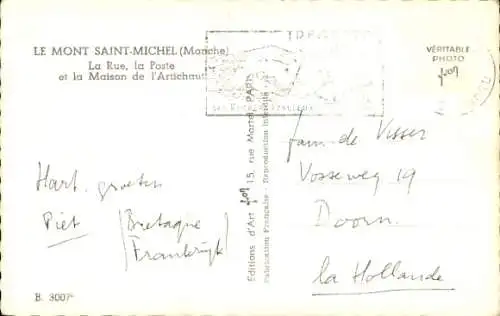 LE MONT SAINT-MICHEL (Manche)
La Rue, la Poste
et la Maison de l'Artichaut
VÉRITABLE
PHOTO
Hart. groeten
Piet
(Bretagne
Frankrijk)
Editions d'Art 15, rue Martel, PARIS
Fabrication Française - Reproduction interdite
fam. de Visser
Vosseweg 19
Doorn.
la Hollande
B. 3007